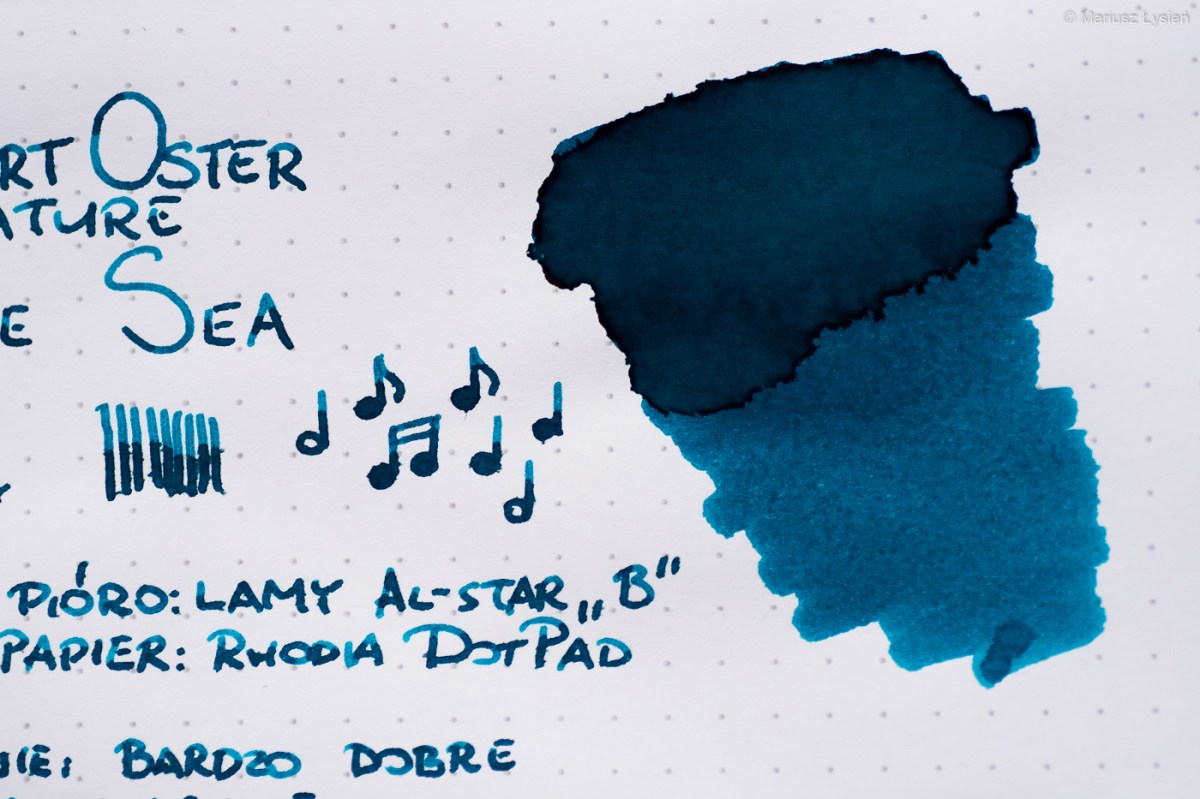 © Mariusz Łysień
RT OSTER
ATURE
E SEA
PIÓRO: LAMY AL-STAR „B”
PAPIER: RHODIA DOTPAD
NIE: BARDZO DOBRE